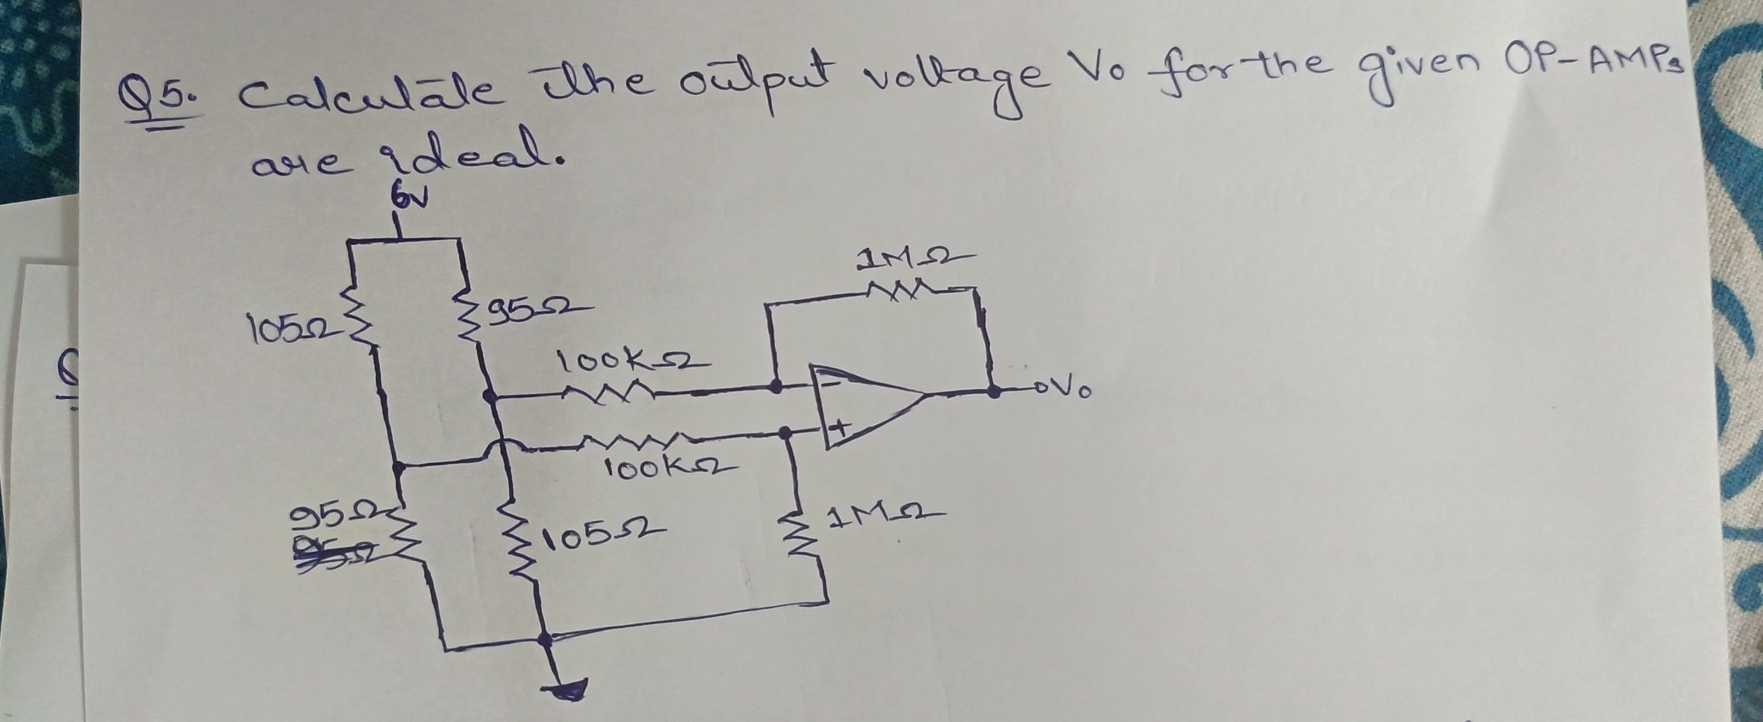 Q5. Calculate the output voltage Vo for the given OP-AMPs
are ideal.
6V
1MΩ
105Ω
95Ω
100KΩ
-
Vo
+
100KΩ
95Ω
105Ω
1MΩ